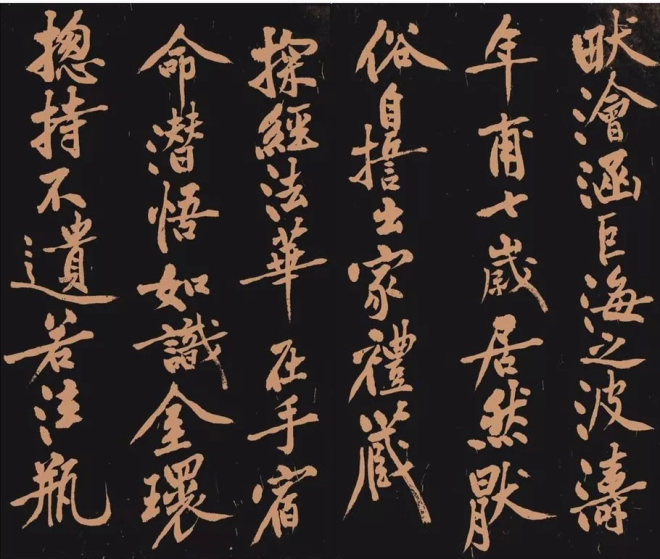 畎澮涵巨海之波濤
年甫七歲居然猒
俗自誓出家禮藏
探經法華在手宿
命潛悟如識金環
摠持不遺若注瓶